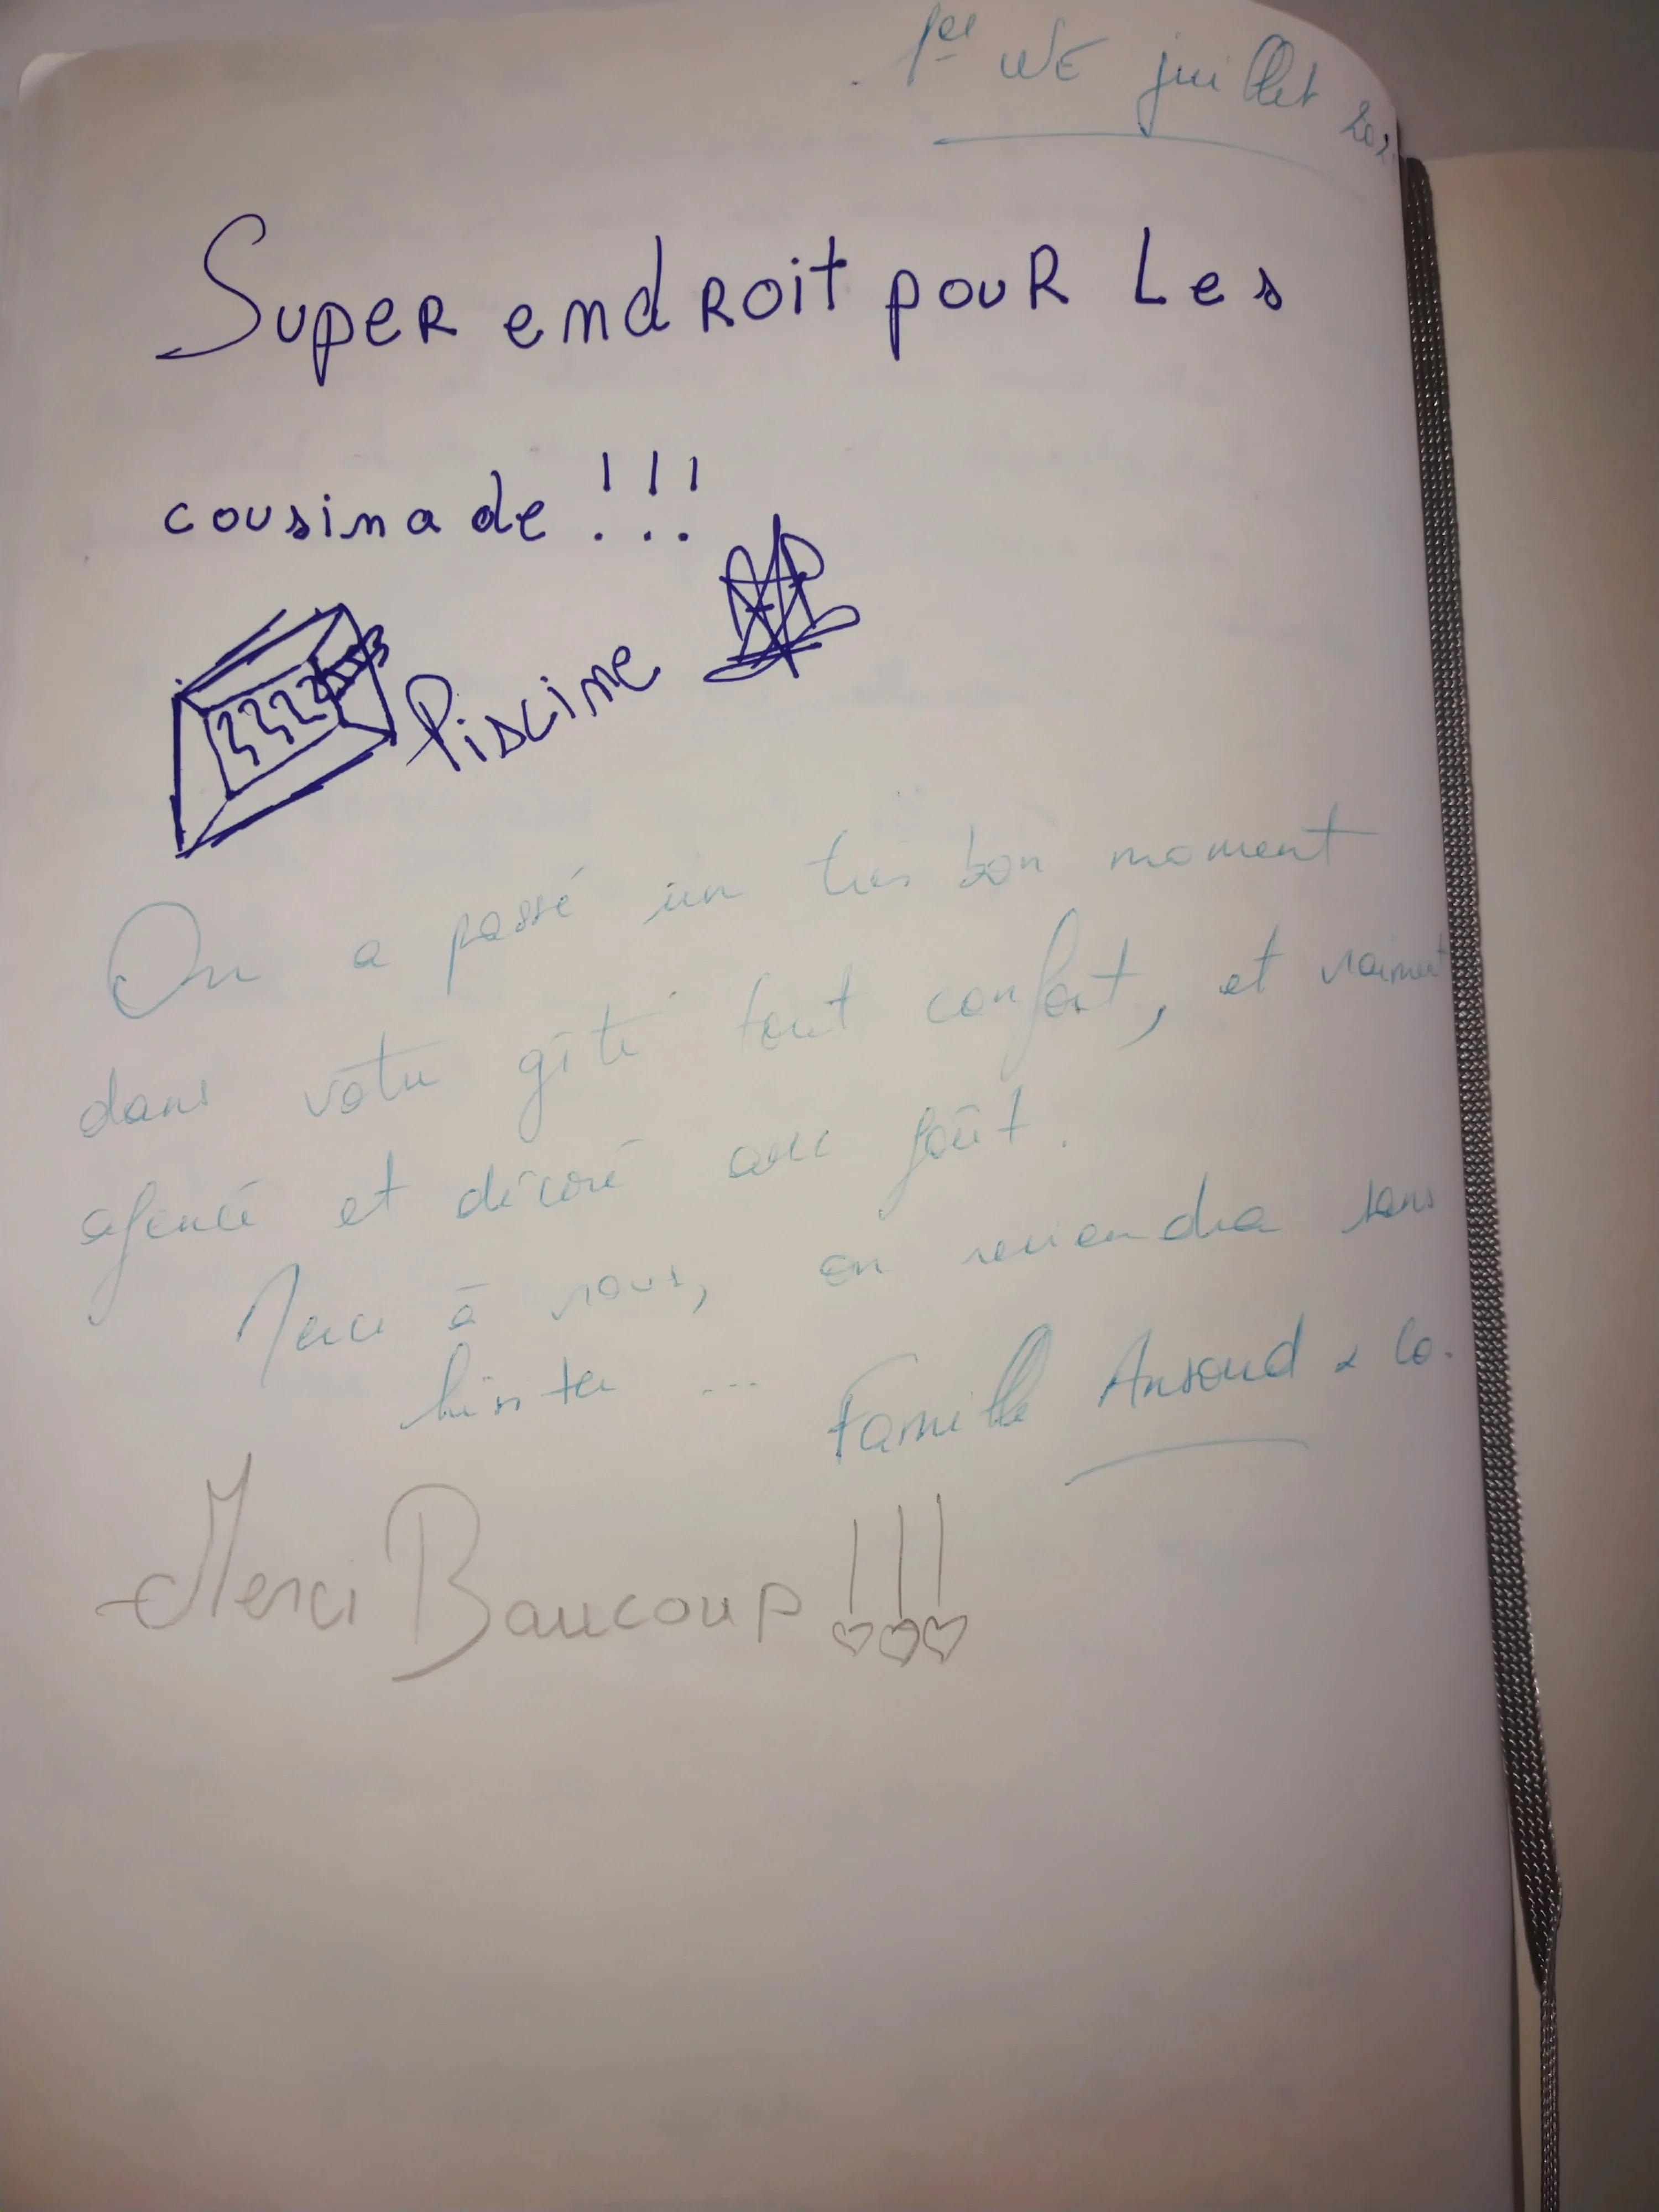 1er WE juillet 202
Super endroit pour Les
cousinade !!!
Piscine
On a passé un très bon moment
dans votre gîte tout confort, et vraiment
agencé et décoré avec goût.
Merci à vous, on reviendra sans
hésiter ...
Famille & Co.
Merci Baucoup !!!